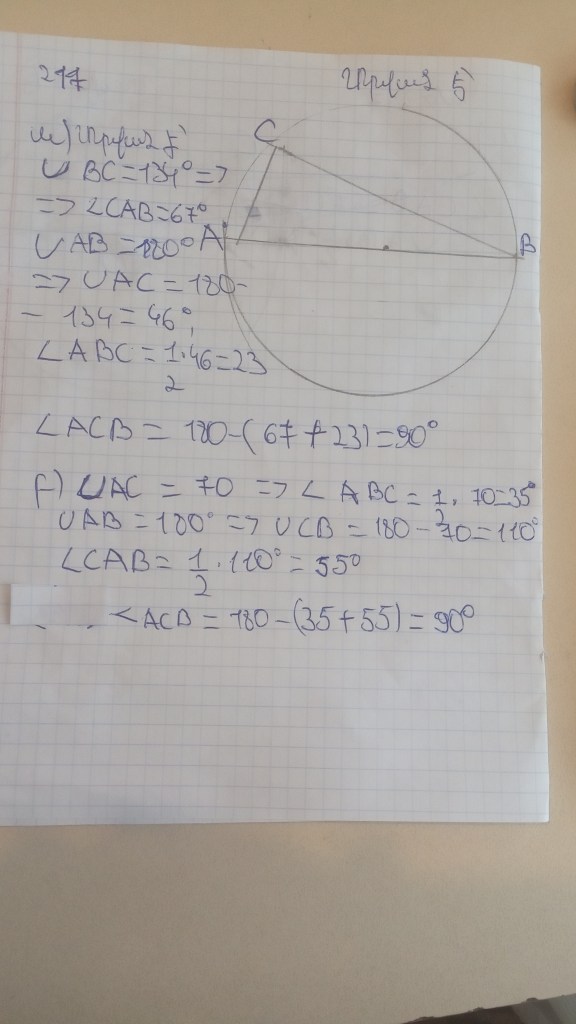 277
ա)
C
∪ BC = 134° =>
=> ∠CAB = 67°
∪AB = 180° A
B
=> ∪AC = 180 -
- 134 = 46°,
∠ABC = 1/2 · 46 = 23
∠ACB = 180 - (67 + 23) = 90°
բ) ∪AC = 70 => ∠ABC = 1/2 · 70 = 35°
∪AB = 180° => ∪CB = 180 - 70 = 110°
∠CAB = 1/2 · 110° = 55°
∠ACB = 180 - (35 + 55) = 90°